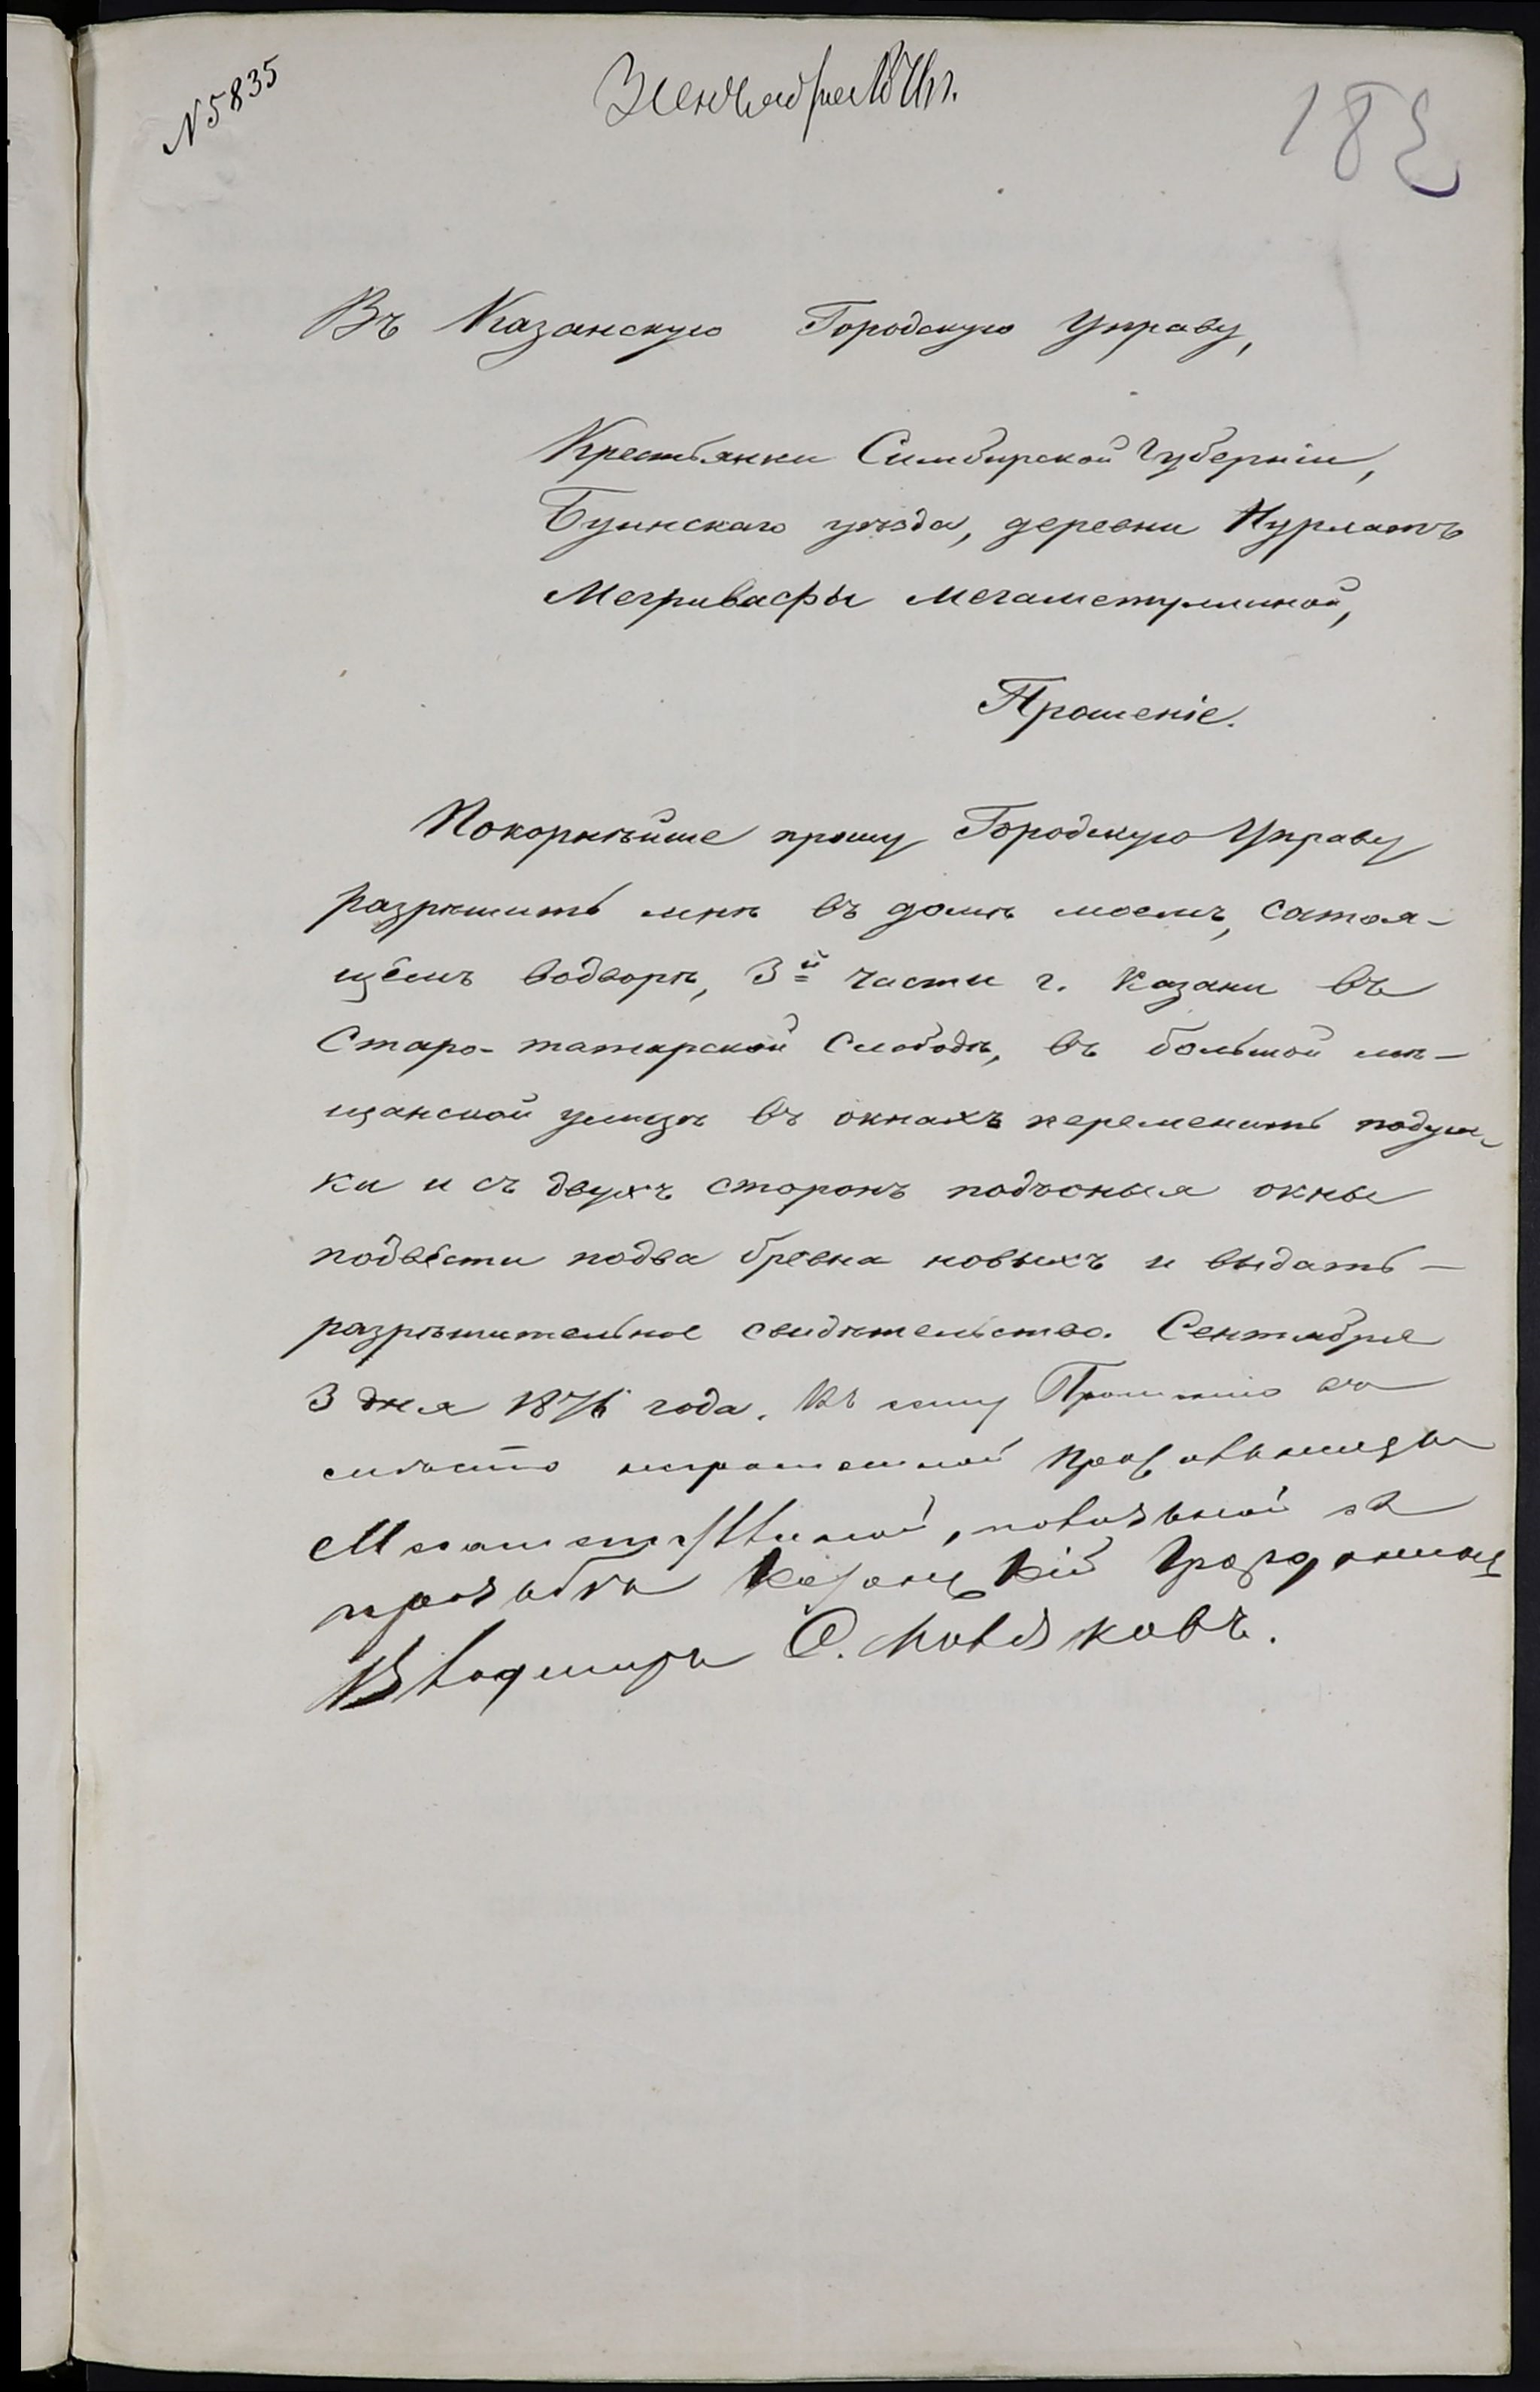 N 5835
3 сентября 1876 г.
182
Въ Казанскую Городскую Управу,
Крестьянки Симбирской Губерніи,
Буинскаго уѣзда, деревни Нурлатъ
Мегривафы Мегаметуллиной,
Прошеніе.
Покорнѣйше прошу Городскую Управу
разрѣшить мнѣ въ домѣ моемъ, состоя-
щемъ водворѣ, 3й части г. Казани въ
Старо-татарской Слободѣ, въ большой мѣ-
щанской улицѣ въ окнахъ переменить подуш-
ки и съ двухъ сторонъ подъоныя окны
подвести подва бревна новыхъ и выдать
разрѣшительное свидѣтельство. Сентября
3 дня 1876 года. Къ сему Прошенію
вмѣсто неграмотной
Мегаметуллиной, по
прозьбѣ Казанскій
Владимиръ